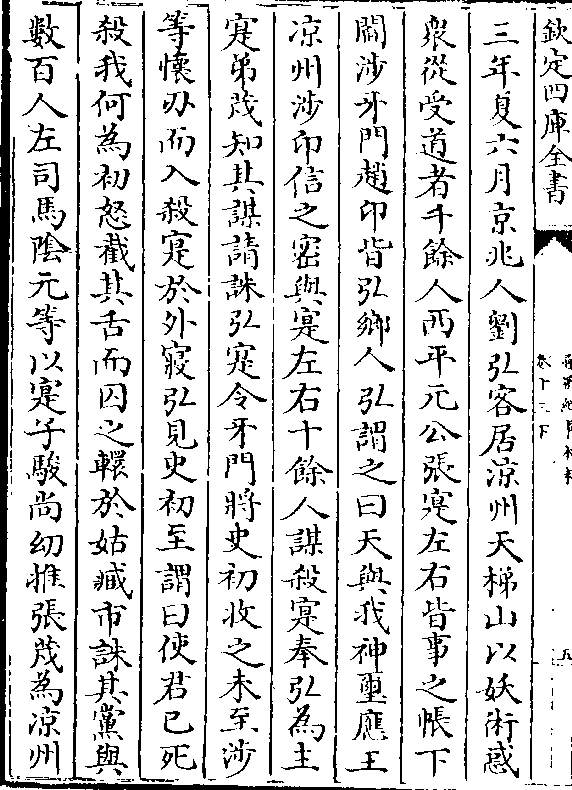 欽定四庫全書
卷十三下
五
三年夏六月京兆人劉弘客居涼州天梯山以妖術惑
衆從受道者千餘人西平元公張寔左右皆事之帳下
閻涉牙門趙印皆弘鄉人弘謂之曰天與我神璽應王
涼州涉印信之密與寔左右十餘人謀殺寔奉弘為主
寔弟茂知其謀請誅弘寔令牙門將史初收之未至涉
等懷刃而入殺寔於外寢弘見史初至謂曰使君已死
殺我何為初怒截其舌而囚之轘於姑臧市誅其黨與
數百人左司馬陰元等以寔子駿尚幼推張茂為涼州